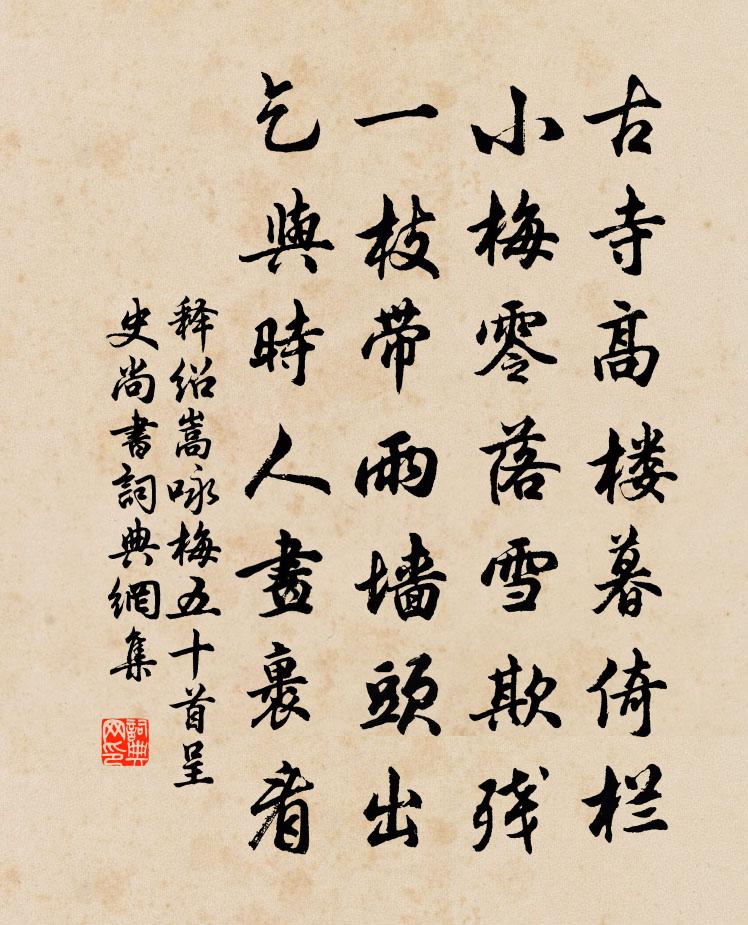 古寺高楼暮倚栏
小梅零落雪欺残
一枝带雨墙頭出
乞與時人畫裏看
释绍嵩咏梅五十首呈
史尚書詞典網集
詞典
网印